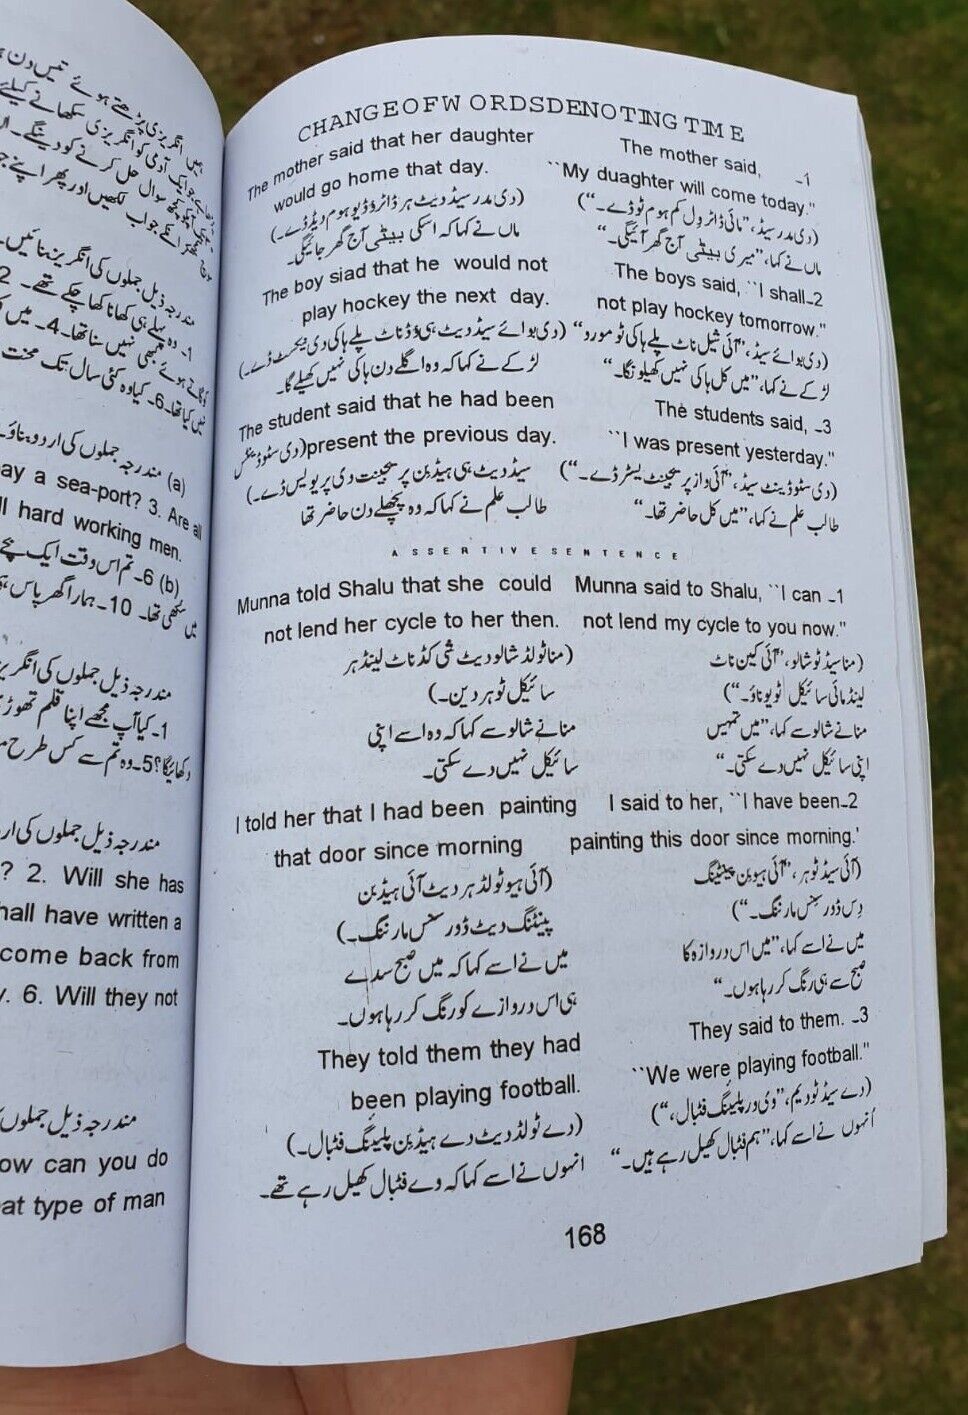 CHANGEOFW ORDSDENOTING TIME
The mother said, -1
``My duaghter will come today."
(دی مدر سیڈ، ”مائی ڈاٹر وِل کم ہوم ٹوڈے۔“)
ماں نے کہا، ”میری بیٹی آج گھر آئیگی۔“
The mother said that her daughter
would go home that day.
(دی مدر سیڈ دیٹ ہر ڈاٹر وڈ گیو ہوم دیٹ ڈے۔)
ماں نے کہا کہ اسکی بیٹی آج گھر جائیگی۔
The boys said, ``I shall-2
not play hockey tomorrow."
(دی بوائے سیڈ، ”آئی شیل ناٹ پلے ہاکی ٹومورو“
لڑکے نے کہا، ”میں کل ہاکی نہیں کھیلونگا۔“
The boy siad that he would not
play hockey the next day.
(دی بوائے سیڈ دیٹ ہی وُڈ ناٹ پلے ہاکی دی نیکسٹ ڈے۔)
لڑکے نے کہا کہ وہ اگلے دن ہاکی نہیں کھیلے گا۔
The students said, -3
``I was present yesterday."
(دی سٹوڈینٹ سیڈ، ”آئی واز پریجینٹ یسٹرڈے۔“)
طالب علم نے کہا، ”میں کل حاضر تھا۔“
The student said that he had been
present the previous day. (دی سٹوڈینٹس
سیڈ دیٹ ہی ہیڈ بِن پریجینٹ دی پریویس ڈے۔)
طالب علم نے کہا کہ وہ پچھلے دن حاضر تھا
ASSERTIVESENTENCE
Munna said to Shalu, ``I can -1
not lend my cycle to you now."
(منا سیڈ ٹو شالو، ”آئی کین ناٹ
لینڈ مائی سائیکل ٹو یو ناؤ۔“)
منانے شالو سے کہا، ”میں تمہیں
اپنی سائیکل نہیں دے سکتی۔“
Munna told Shalu that she could
not lend her cycle to her then.
(منا ٹولڈ شالو دیٹ شی کڈ ناٹ لینڈ ہر
سائیکل ٹو ہر دین۔)
منانے شالو سے کہا کہ وہ اسے اپنی
سائیکل نہیں دے سکتی۔
I said to her, ``I have been-2
painting this door since morning.'
(آئی سیڈ ٹو ہر، ”آئی ہیو بِن پینٹنگ
دِس ڈور سِنس مارننگ۔“)
میں نے اسے کہا، ”میں اس دروازہ کا
صبح سے ہی رنگ کر رہا ہوں۔“
I told her that I had been painting
that door since morning
(آئی ہیو ٹولڈ ہر دیٹ آئی ہیڈ بِن
پینٹنگ دیٹ ڈور سنس مارننگ۔)
میں نے اسے کہا کہ میں صبح سدے
ہی اس دروازے کو رنگ کر رہا ہوں۔
They said to them. -3
``We were playing football."
(دے سیڈ ٹو دیم، ”وی ور پلینگ فٹبال،“)
اُنہوں نے اسے کہا، ”ہم فٹبال کھیل رہے ہیں۔“
They told them they had
been playing football.
(دے ٹولڈ دیٹ دے ہیڈ بِن پلینگ فٹبال۔)
انہوں نے اسے کہا کہ وے فٹبال کھیل رہے تھے۔
168
مندرجہ ذیل جملوں کی انگریز بنائیں۔
1۔ وہ پہلے ہی کھانا کھا چکے تھے۔ 2
(a) مندرجہ جملوں کی اردو بناؤ۔
ay a sea-port? 3. Are all
ll hard working men.
(b) 6۔ تم اس وقت ایک بچے
مندرجہ ذیل جملوں کی انگریز
1۔ کیا آپ مجھے اپنا قلم تھوڑی
دکھائیگا؟ 5۔ وہ تم سے کس طرح م
مندرجہ ذیل جملوں کی ار
? 2. Will she has
hall have written a
come back from
y. 6. Will they not
مندرجہ ذیل جملوں
ow can you do
at type of man